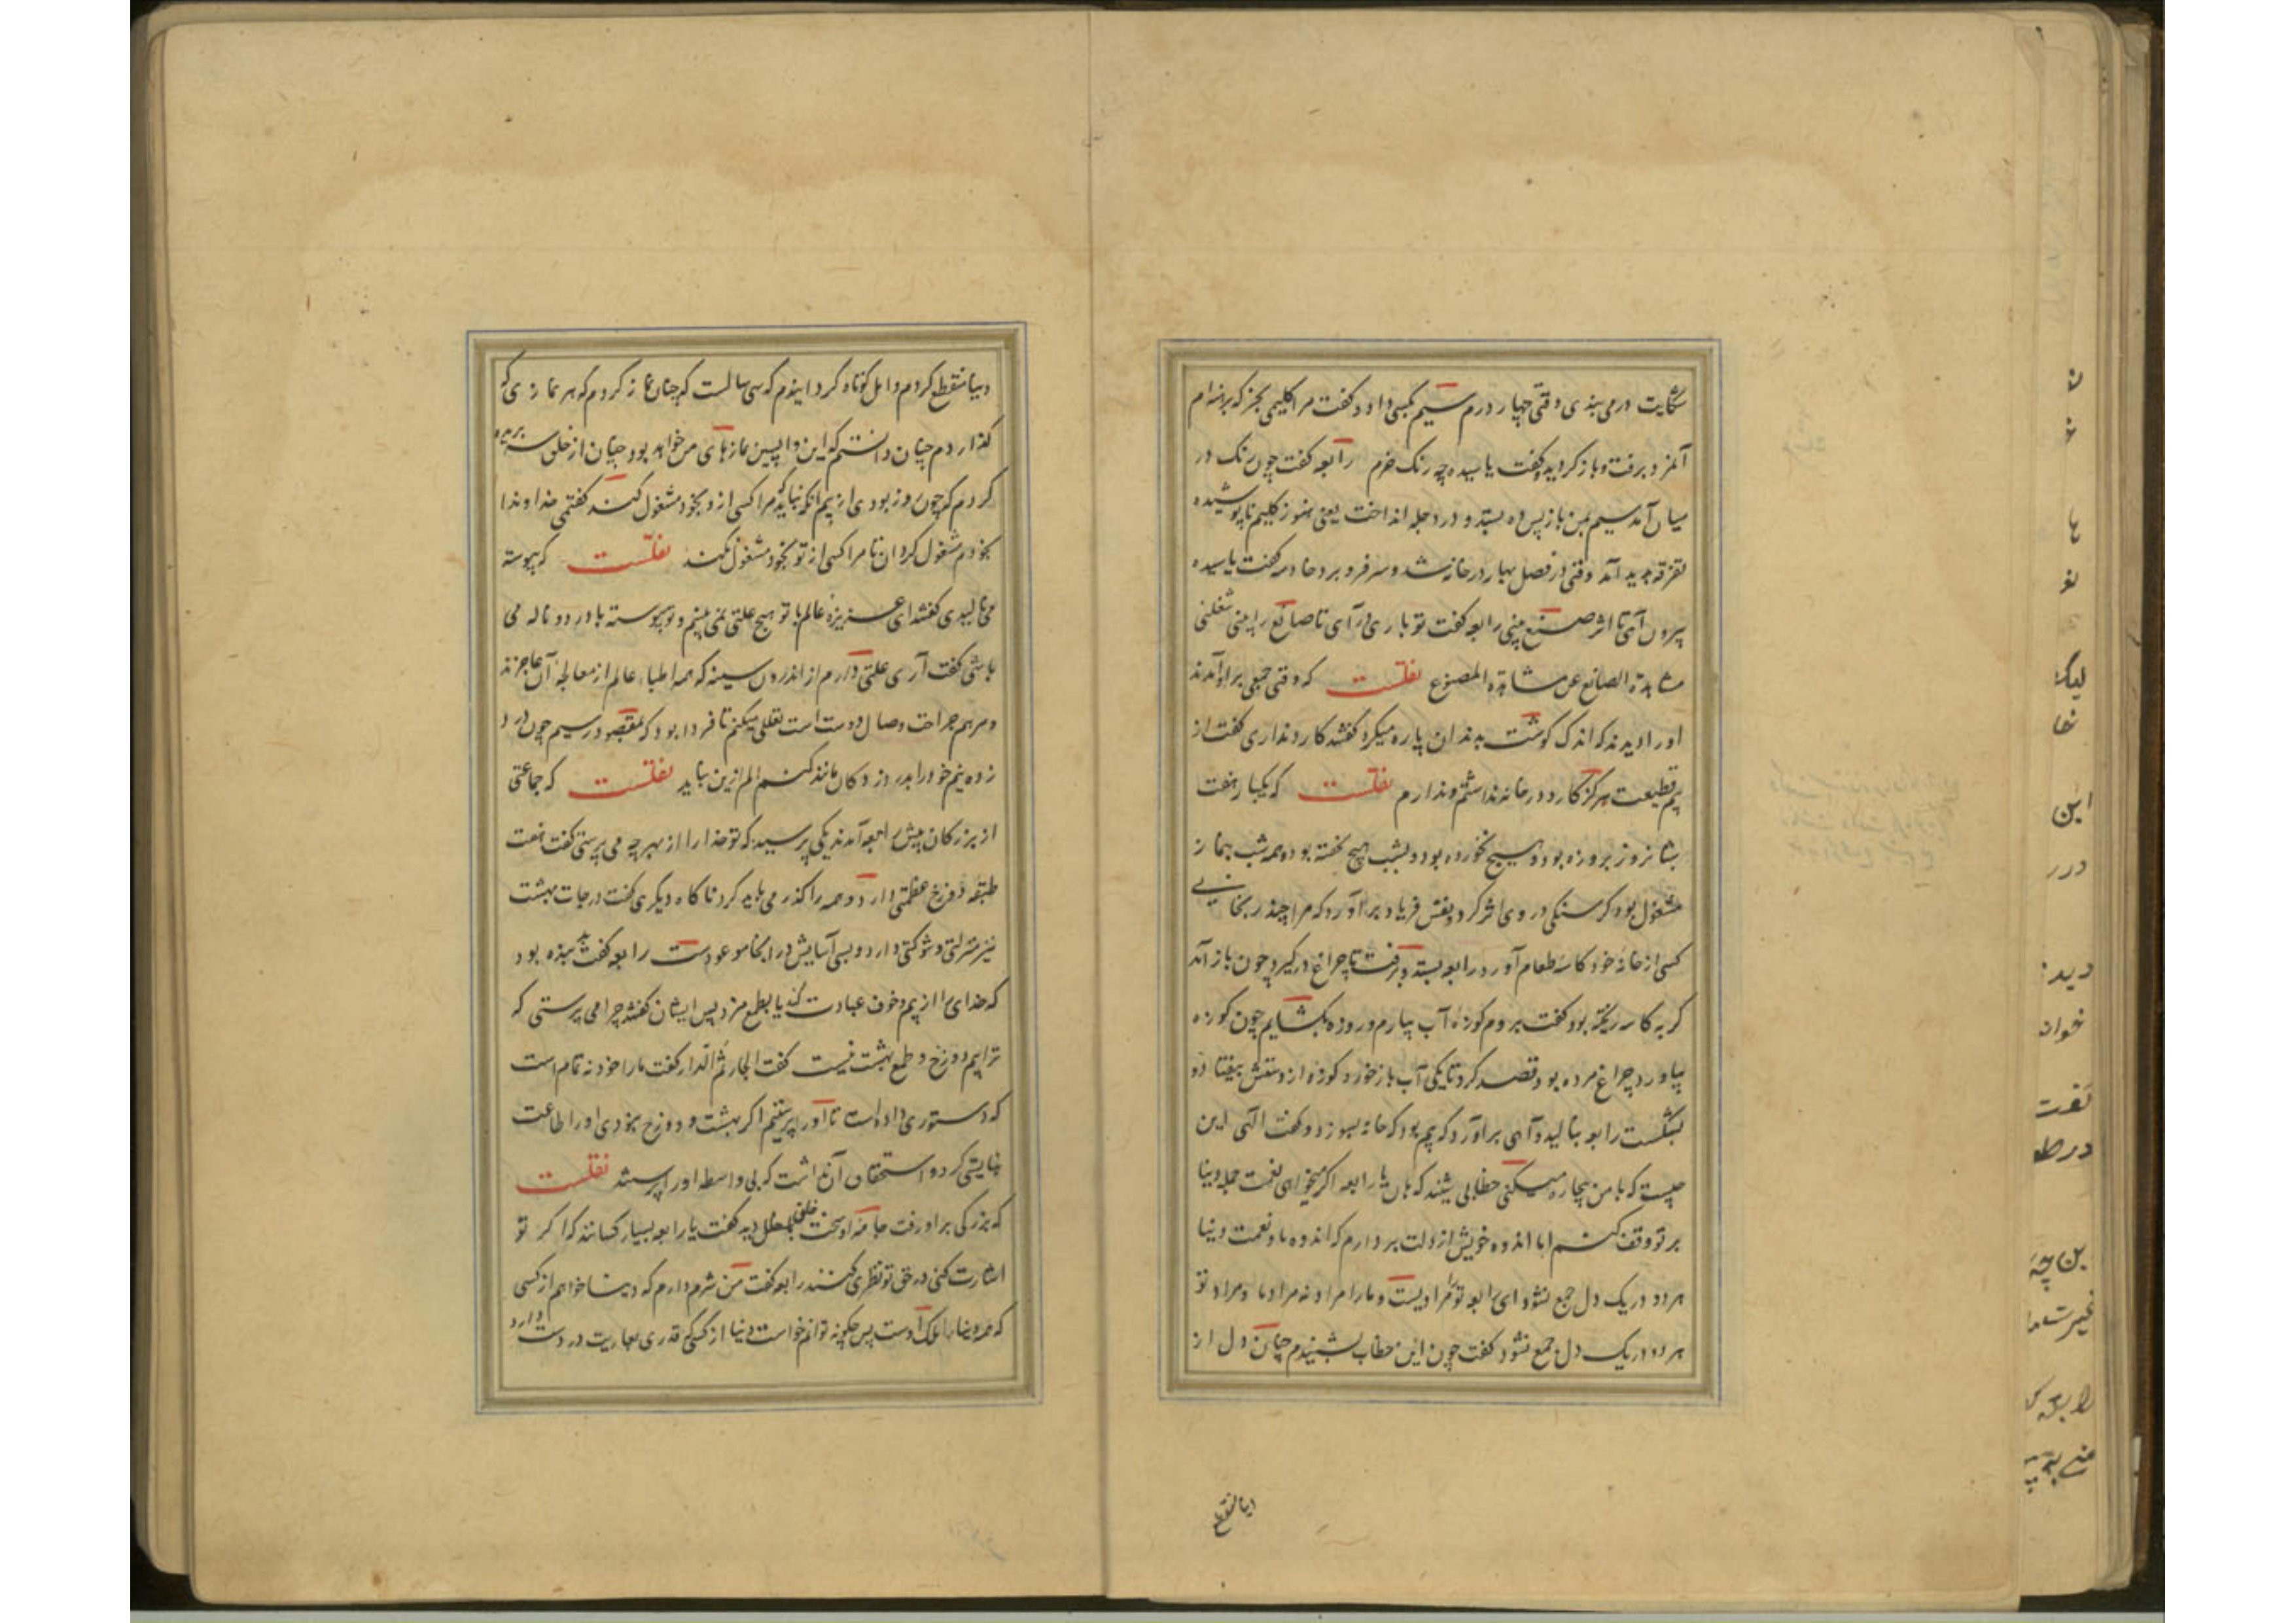 شکایت درمی‌بندی وقتی چهار درم سیم بکسی داد و گفت مرا گلیمی بخر که برهنه‌ام
آنمرد برفت و باز گردید و گفت یا سیده چه رنگ خرم رابعه گفت چون رنگ در
میان آمد سیم بمن باز پس ده بستد و در دجله انداخت یعنی هنوز گلیم ناپوشیده
تفرقه پدید آمد وقتی در فصل بهار در خانه شد و سر فرو برد خادمه گفت یا سیده
بیرون آی تا اثر صنع بینی رابعه گفت تو باری درآی تا صانع را بینی شغلنی
مشاهدة الصانع عن مشاهدة المصنوع نقلست که وقتی جمعی بر او آمدند
او را دیدند که اندک گوشت بدندان پاره میکرد گفتند کارد نداری گفت از
بیم قطیعت هرگز کارد در خانه نداشتم و ندارم نقلست که یکبار هفت
شبانروز بروزه بود و هیچ نخورده بود و بشب هیچ نخفته بود و همه شب بنماز
مشغول بود گرسنگی در وی اثر کرد و نفس فریاد برآورد که مرا چند رنجانی
کسی از خانهٔ خود کاسه طعام آورد رابعه بستد و برفت تا چراغ درگیرد چون باز آمد
گربه کاسه ریخته بود گفت بروم کوزه آب بیارم و روزه بگشایم چون کوزه
بیاورد چراغ مرده بود قصد کرد تا یکی آب باز خورد کوزه از دستش بیفتاد و
بشکست رابعه بنالید و آهی برآورد که بیم بود که خانه بسوزد و گفت الهی این
چیست که با من بیچاره میکنی خطابی شنید که هان یا رابعه اگر میخواهی نعمت جمله دنیا
بر تو وقف کنم اما اندوه خویش از دلت بردارم که اندوه ما و نعمت دنیا
هر دو در یک دل جمع نشود ای رابعه تو را مرادیست و ما را مراد نه مراد ما و مراد تو
هر دو در یک دل جمع نشود گفت چون این خطاب بشنیدم چنان دل از
دنیا منقطع
دنیا منقطع کردم و امل کوتاه گردانیدم که سی سالست که چنان نماز کردم که هر نمازی که
گذاردم چنان دانستم که این واپسین نمازهای من خواهد بود و چنان از خلق بریده
کردم که چون روز بودی از بیم آنکه نباید که مرا کسی ازو بخود مشغول کند گفتمی خداوندا
بخودم مشغول گردان تا مرا کسی از تو بخود مشغول نکند نقلست که پیوسته
می‌نالیدی گفتند ای عزیزهٔ عالم با تو هیچ علتی نمی‌بینم و تو پیوسته با درد و ناله می
باشی گفت آری علتی دارم از اندرون سینه که همه اطباء عالم از معالجهٔ آن عاجزند
و مرهم جراحت وصال دوست است تعللی میکنم تا فردا بود که بمقصود رسیم چون درد
زده نیم خود را بدرد زدگان مانند کنم کم ازین نباید نقلست که جماعتی
از بزرگان پیش رابعه آمدند یکی پرسید که تو خدا را از بهر چه می‌پرستی گفت هفت
طبقه دوزخ عظمتی دارد و همه را گذر می‌باید کرد ناگاه دیگری گفت درجات بهشت
نیز منزلتی و شوکتی دارد و بسی آسایش در آنجا موعودست رابعه گفت بد بنده بود
که خدای را از بیم و خوف عبادت کند یا بطمع مزد پس ایشان گفتند چرا می‌پرستی که
ترا بیم دوزخ و طمع بهشت نیست گفت الجار ثم الدار گفت ما را خود نه تمام است
که دستوری داده‌است تا او را پرستیم اگر بهشت و دوزخ نبودی او را طاعت
نبایستی کرد و استحقاق آن نداشت که بی واسطه او را پرستند نقلست
که بزرگی بر او رفت جامه او سخت خلق دید گفت یا رابعه بسیار کسانند که اگر تو
اشارت کنی در حق تو نظری کنند رابعه گفت من شرم دارم که دنیا خواهم از کسی
که همه دنیا ملک اوست پس چگونه توانم خواست دنیا از کسی که قدری بعاریت در دست دارد